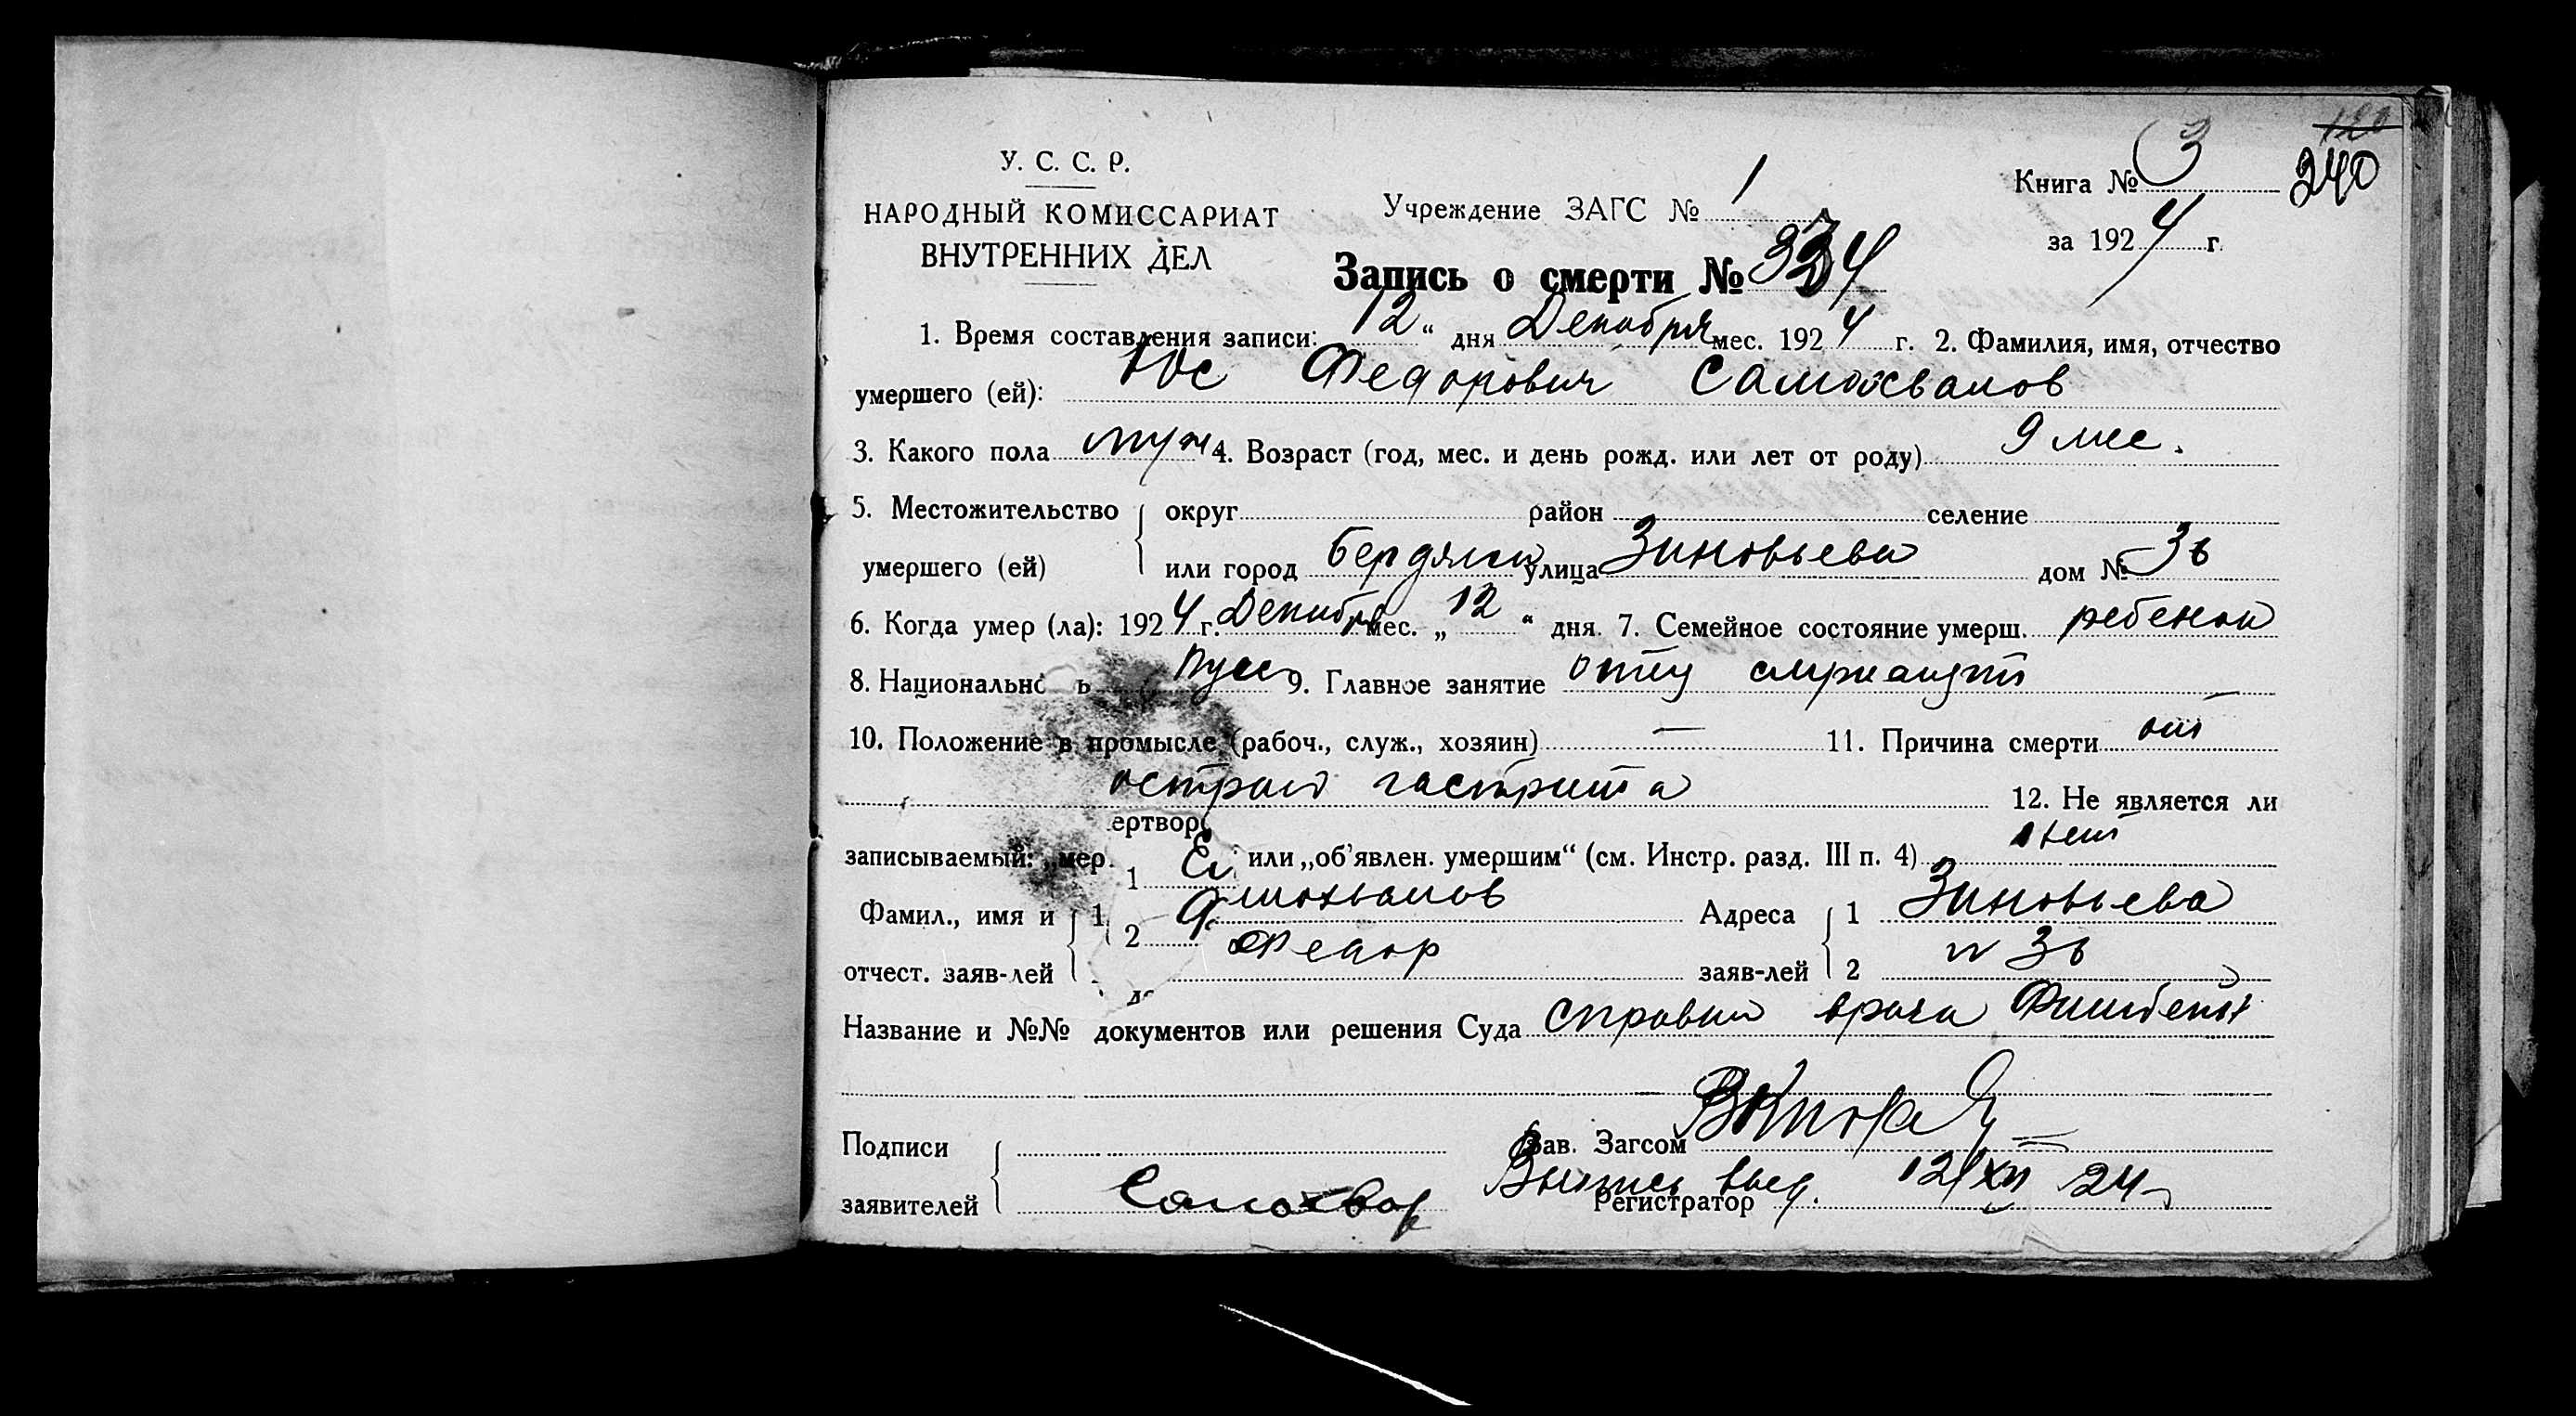 120
240
У. С. С. Р.
НАРОДНЫЙ КОМИССАРИАТ
ВНУТРЕННИХ ДЕЛ
Учреждение ЗАГС № 1
Книга № 3
за 1924 г.
Запись о смерти № 334
1. Время составления записи: 12 " дня Декабря мес. 1924 г. 2. Фамилия, имя, отчество
умершего (ей): Юс Федорович Самохвалов
3. Какого пола муж 4. Возраст (год, мес. и день рожд. или лет от роду) 9 мес.
5. Местожительство { округ район селение
умершего (ей) или город Бердянск улица Зиновьева дом № 36
6. Когда умер (ла): 1924 г. Декабря мес. „ 12 " дня. 7. Семейное состояние умерш. ребенок
8. Национально ь русс 9. Главное занятие отец —
10. Положение в промысле (рабоч., служ., хозяин) — 11. Причина смерти от
острого гастрита 12. Не является ли
ертвор
записываемый: „мер. 1 или „об'явлен. умершим" (см. Инстр. разд. III п. 4) нет
Фамил., имя и { 1 мохвалов Адреса { 1 Зиновьева
2
отчест. заяв-лей Федор заяв-лей 2 № 36
Название и №№ документов или решения Суда справка врача
Подписи { Зав. Загсом
заявителей Самохвал Выпись выд. 12/XII 24
Регистратор